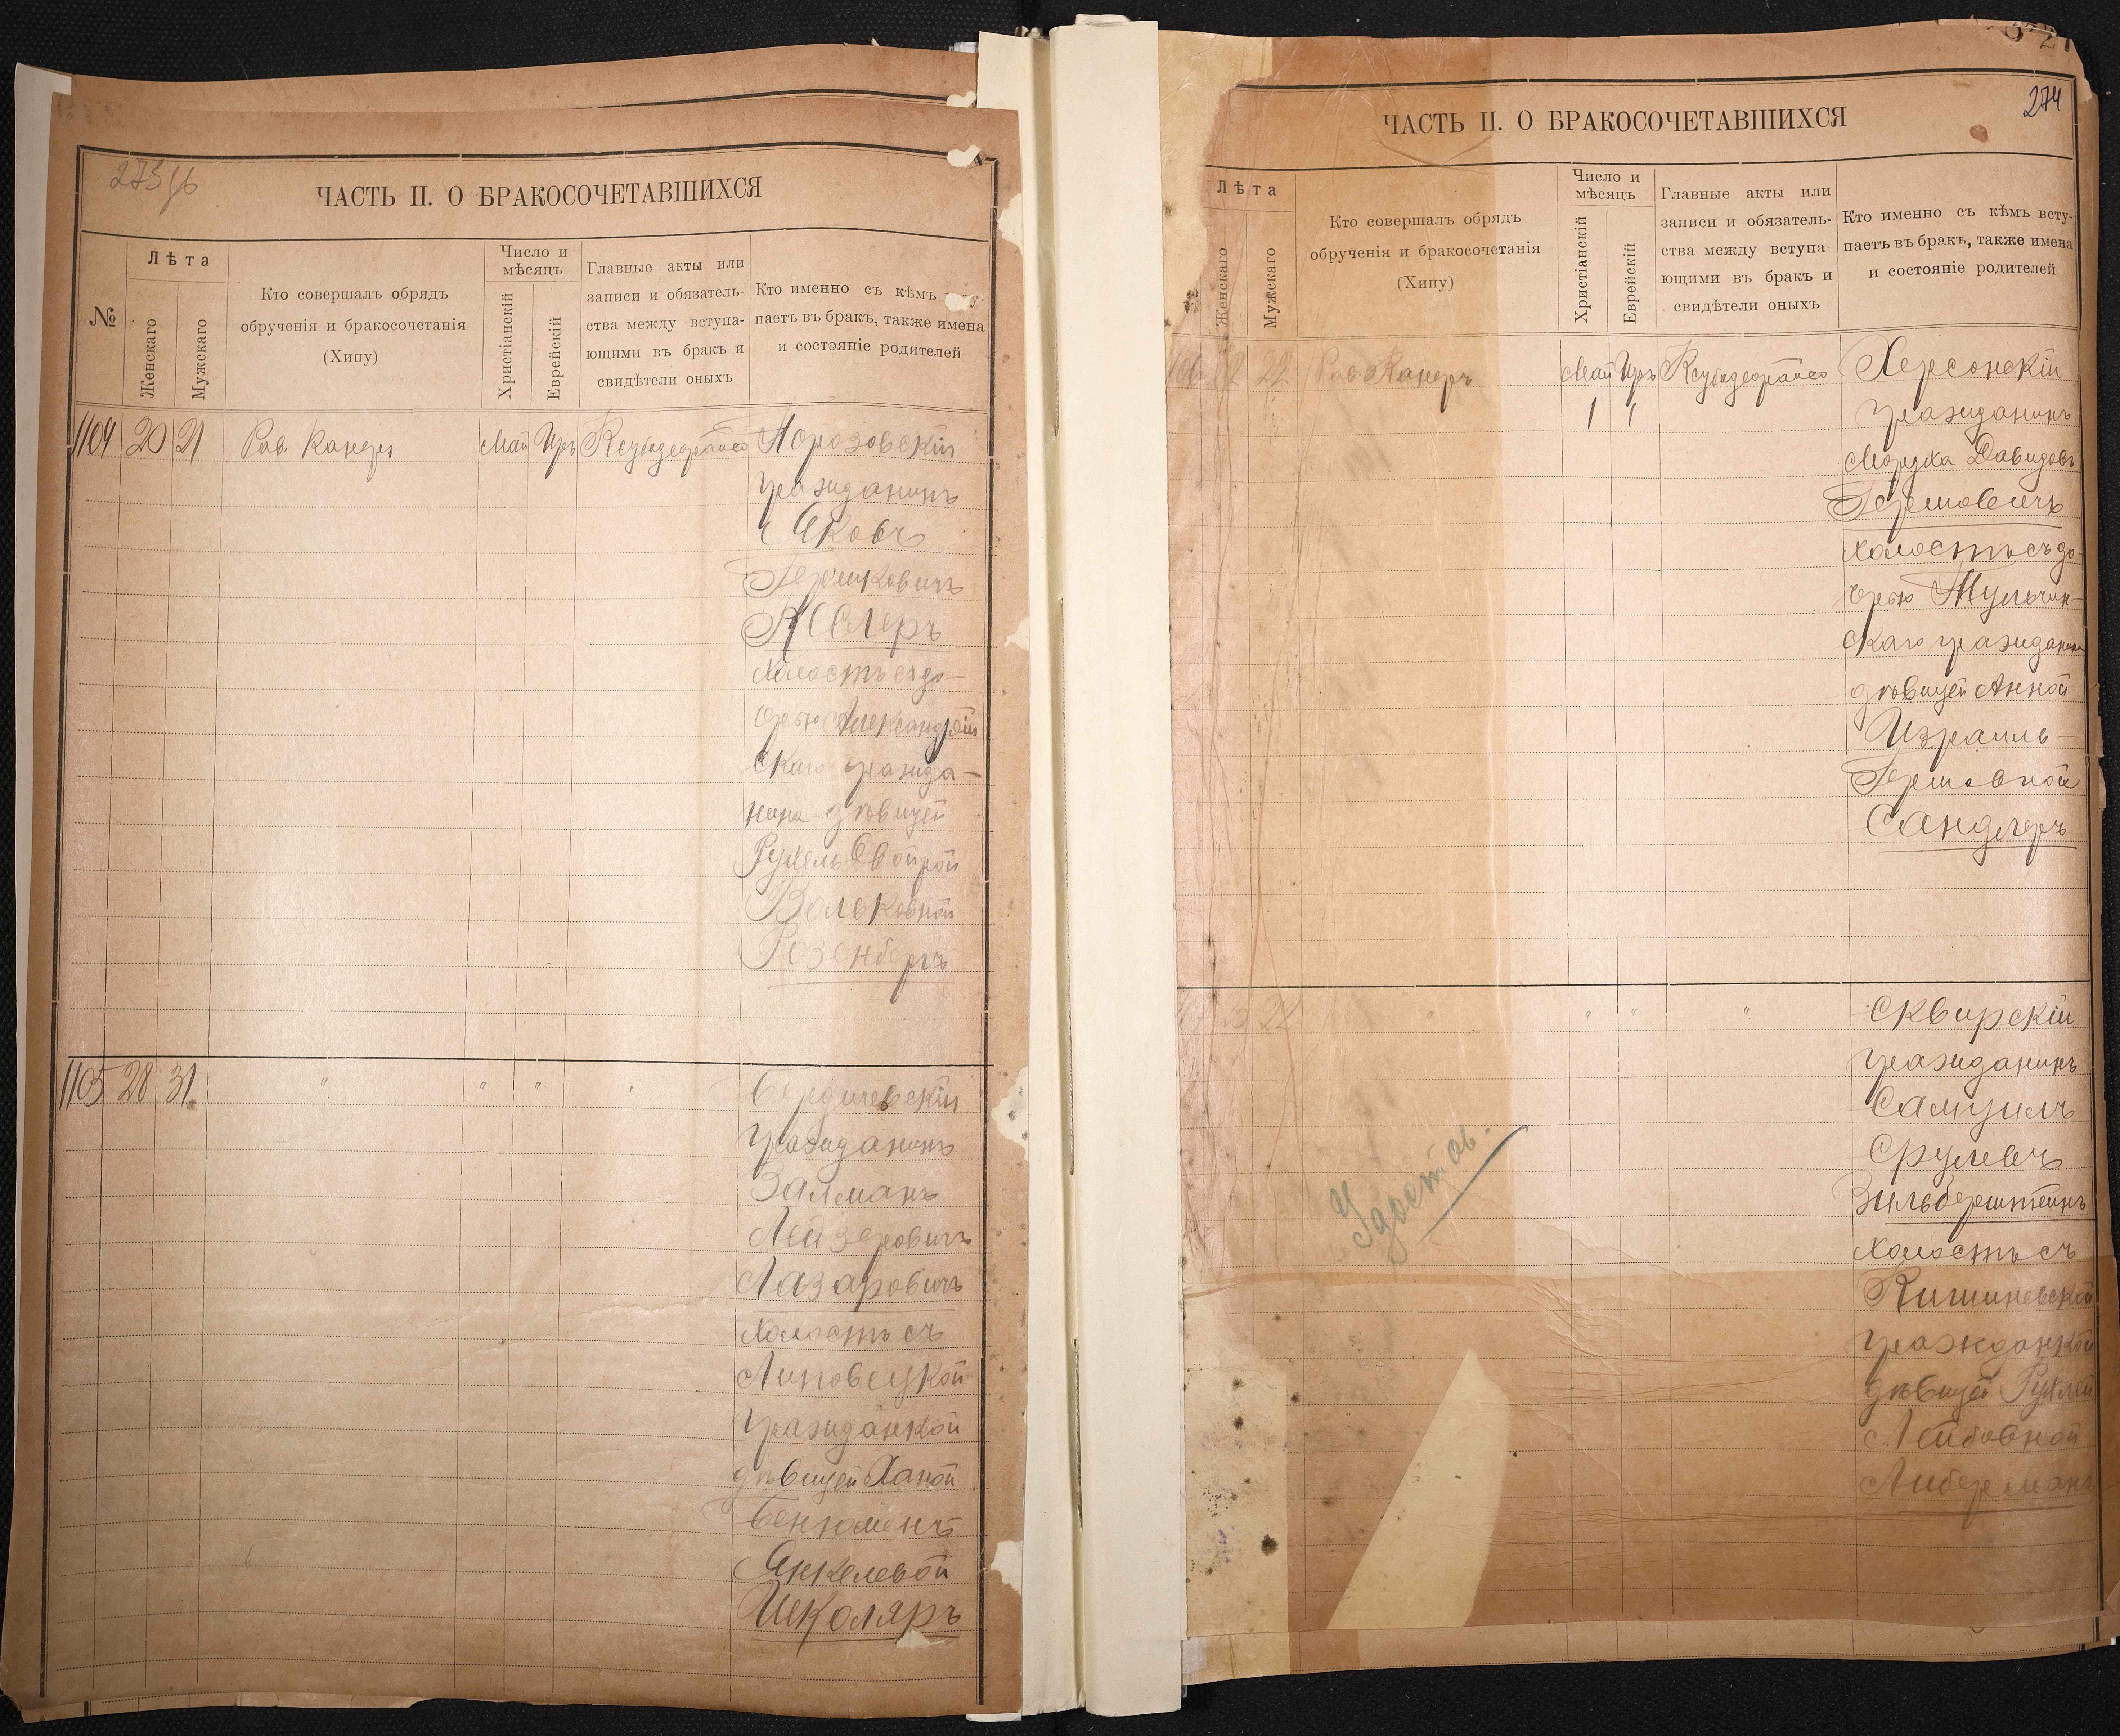 ЧАСТЬ II. О БРАКОСОЧЕТАВШИХСЯ
№
Лѣта
Женскаго
Мужскаго
Кто совершалъ обрядъ
обрученія и бракосочетанія
(Хипу)
Число и
мѣсяцъ
Христіанскій
Еврейскій
Главные акты или
записи и обязатель-
ства между вступа-
ющими въ бракъ и
свидѣтели оныхъ
Кто именно съ кѣмъ
паетъ въ бракъ, также имена
и состояніе родителей
1104 20 21 Рав. Канеръ Май Иръ
гражданинъ
Яковъ
Гершковичъ
холостъ съ до-
черью Александрій
скаго гражда-
нина дѣвицей
Рухель Двойрой
Вольковной
Розенбергъ
1105 28 31 " " " "
Бердичевскій
гражданинъ
Залманъ
Лейзеровичъ
Лазаровичъ
холостъ съ
Липовецкой
гражданкой
дѣвицей Ханой
Бенюменъ
Янкелевой
Школяръ
274
ЧАСТЬ II. О БРАКОСОЧЕТАВШИХСЯ
Лѣта
Женскаго
Мужскаго
Кто совершалъ обрядъ
обрученія и бракосочетанія
(Хипу)
Число и
мѣсяцъ
Христіанскій
Еврейскій
Главные акты или
записи и обязатель-
ства между вступа-
ющими въ бракъ и
свидѣтели оныхъ
Кто именно съ кѣмъ всту-
паетъ въ бракъ, также имена
и состояніе родителей
22 Рав. Канеръ Май Иръ Херсонскій
1 1 гражданинъ
Мордха Давидовъ
Гершовичъ
холостъ съ до-
черью Тульчин-
скаго гражданина
дѣвицей Анной
Израиль-
Гершовной
Сандлеръ
22 " " " "
Сквирскій
гражданинъ
Самуилъ
Срулевъ
Зильберштейнъ
холостъ съ
Кишиневской
гражданкой
дѣвицей Рухлей
Лейбовной
Либерманъ
Удостов.